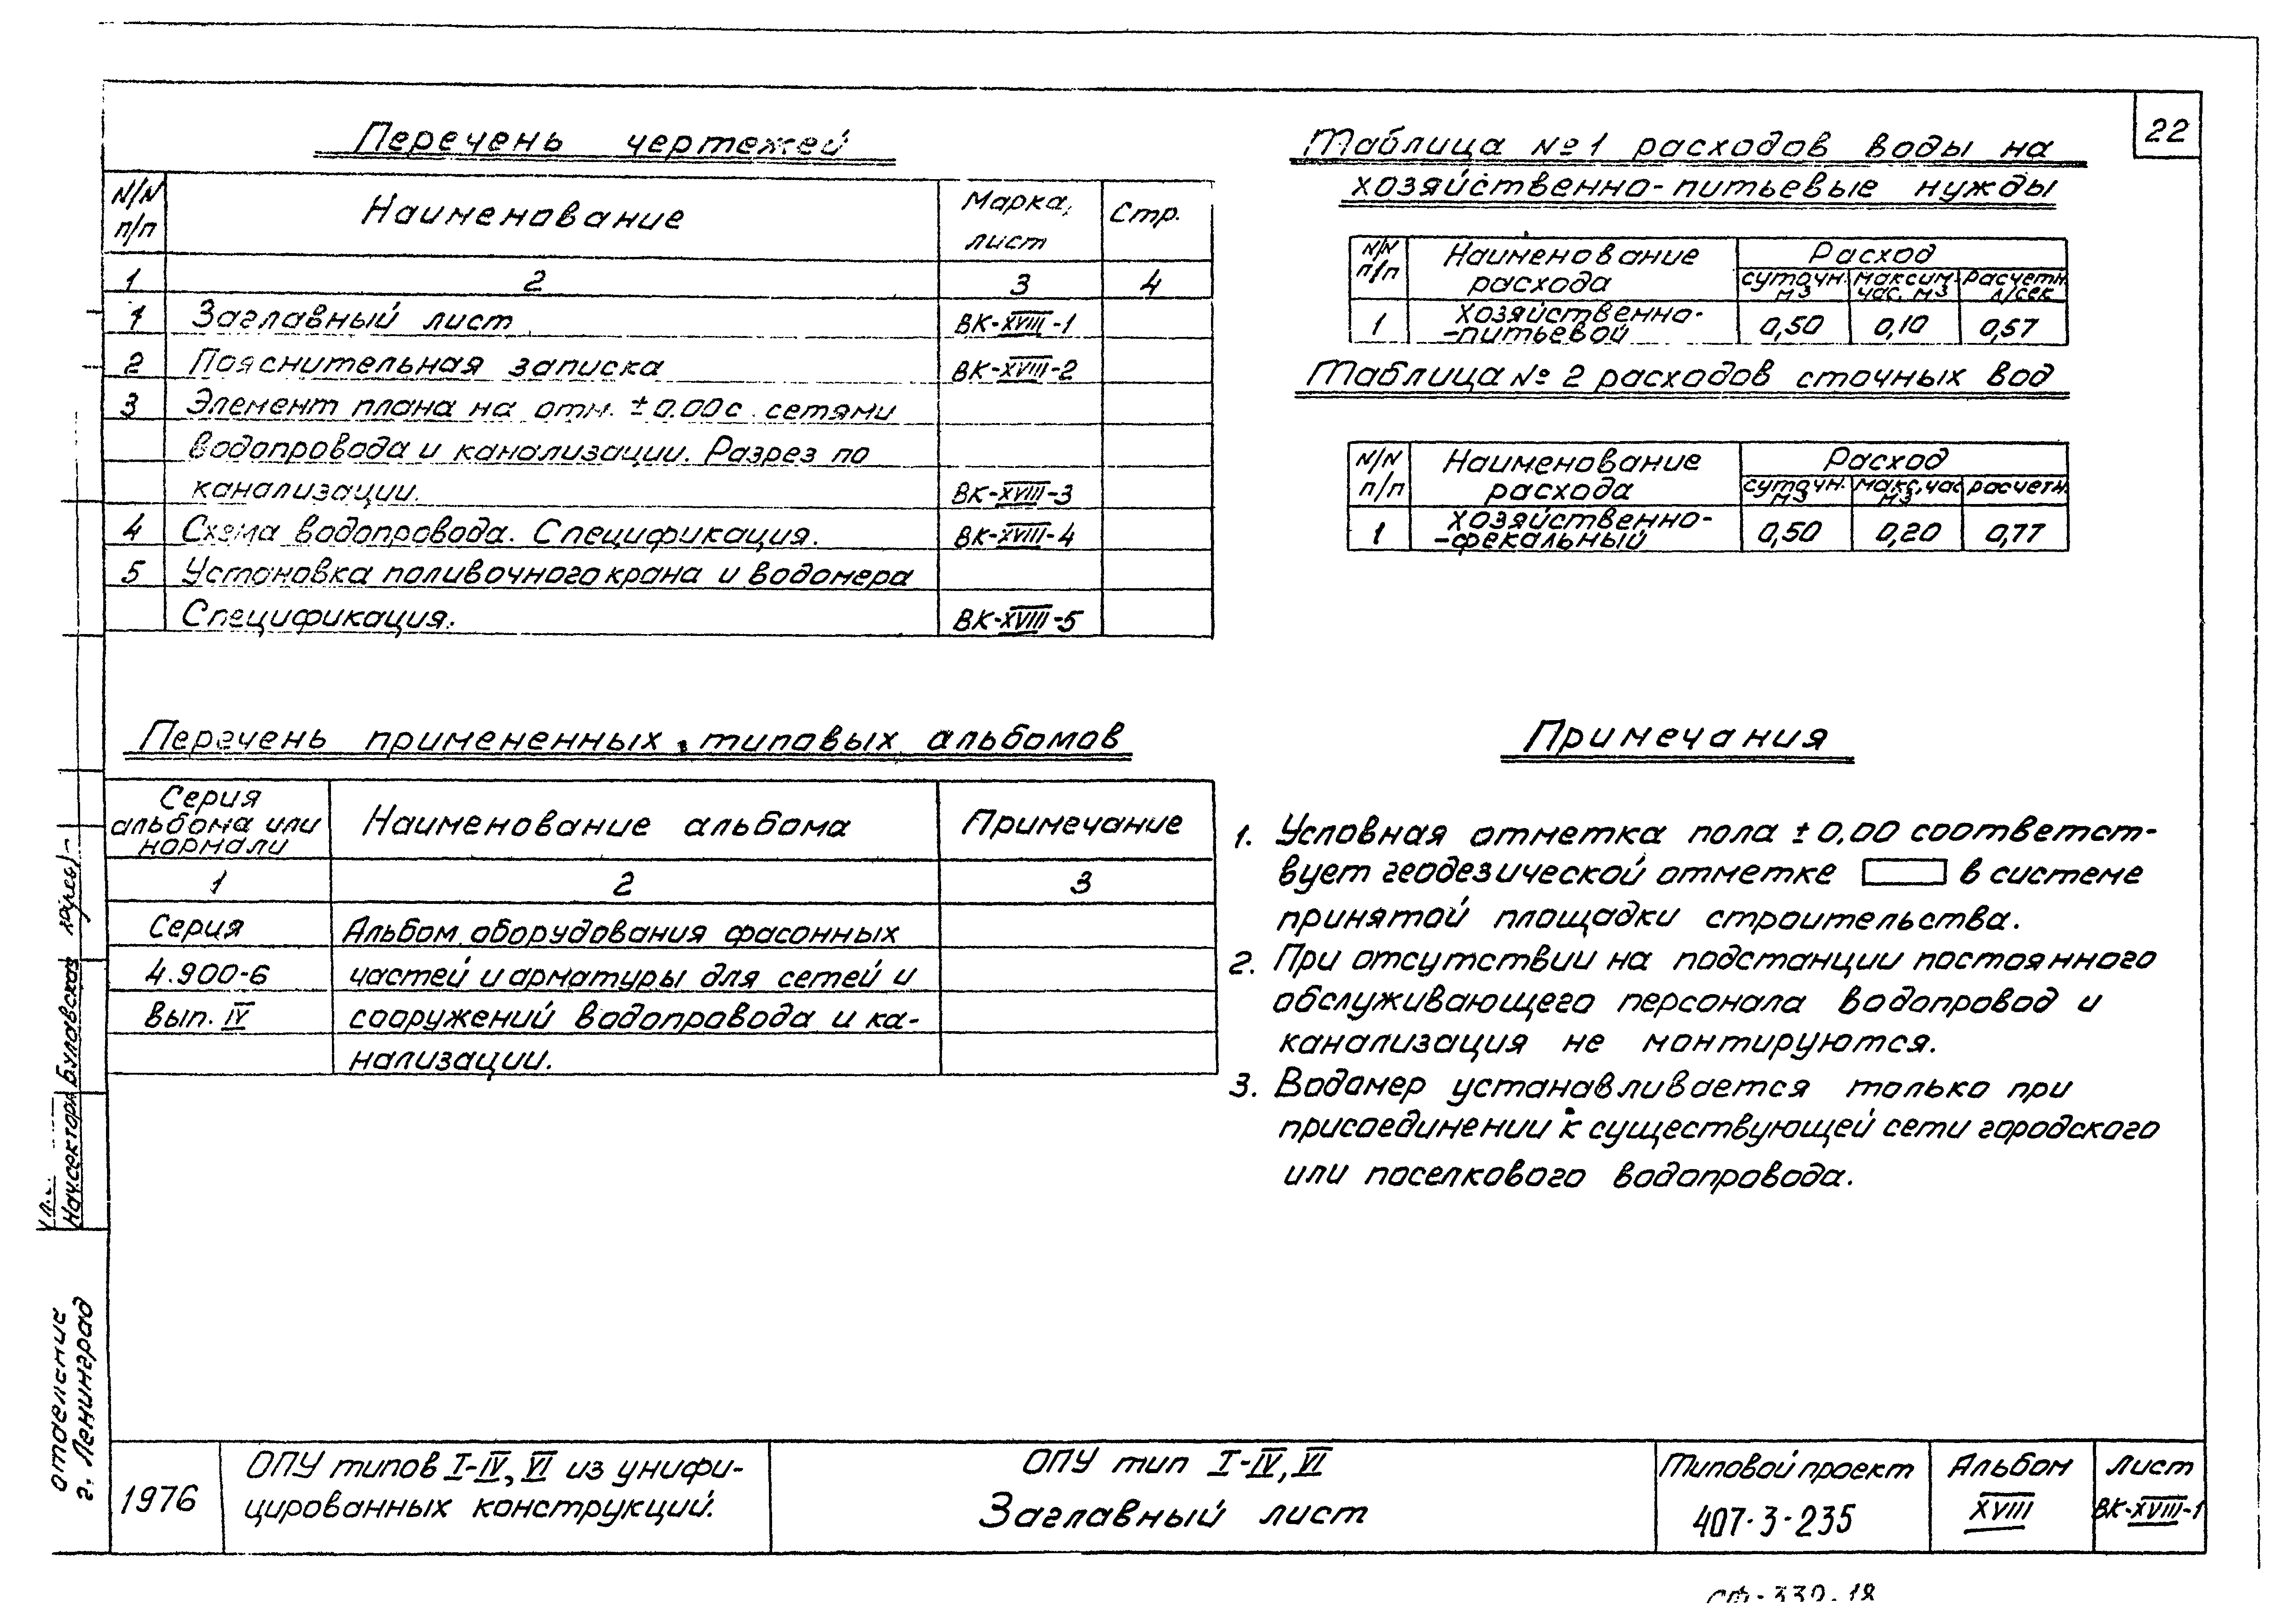 22
Перечень чертежей
N/N п/п Наименование Марка, лист Стр.
1 2 3 4
1 Заглавный лист ВК-XVIII-1
2 Пояснительная записка ВК-XVIII-2
3 Элемент плана на отм. ±0.00 с сетями
водопровода и канализации. Разрез по
канализации. ВК-XVIII-3
4 Схема водопровода. Спецификация. ВК-XVIII-4
5 Установка поливочного крана и водомера
Спецификация. ВК-XVIII-5
Перечень примененных типовых альбомов
Серия альбома или нормали Наименование альбома Примечание
1 2 3
Серия Альбом оборудования фасонных
4.900-6 частей и арматуры для сетей и
Вып. IV сооружений водопровода и ка-
нализации.
Таблица №1 расходов воды на
хозяйственно-питьевые нужды
N/N п/п Наименование расхода Расход
суточн. м3 максим. час. м3 расчетн. л/сек
1 хозяйственно-
-питьевой 0,50 0,10 0,57
Таблица №2 расходов сточных вод
N/N п/п Наименование расхода Расход
суточн. м3 макс. час м3 расчетн.
1 хозяйственно-
-фекальный 0,50 0,20 0,77
Примечания
1. Условная отметка пола ±0.00 соответст-
вует геодезической отметке в системе
принятой площадки строительства.
2. При отсутствии на подстанции постоянного
обслуживающего персонала водопровод и
канализация не монтируются.
3. Водомер устанавливается только при
присоединении к существующей сети городского
или поселкового водопровода.
Нач.сектора Булавская
отделение
г. Ленинград
1976
ОПУ типов I-IV, VI из унифи-
цированных конструкций.
ОПУ тип I-IV, VI
Заглавный лист
Типовой проект
407-3-235
Альбом
XVIII
Лист
ВК-XVIII-1